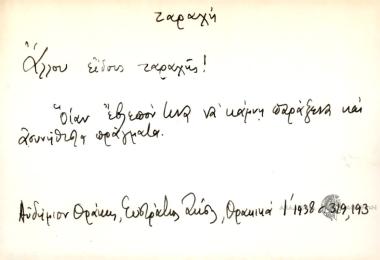 ταραχή
Ἄλλου εἴδους ταραχῆς!
Ὅταν ἔβλεπον ἕνα νὰ κάμνῃ παράξενα καὶ
ἀσυνήθιστα πράγματα.
Αὐδήμιον Θράκης, Εὐστράτιος Ζήσης, Θρακικά 1938 σ. 319, 193